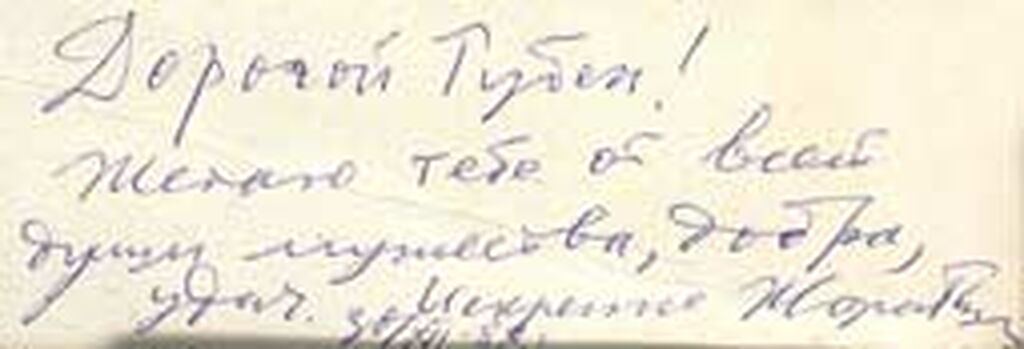 Дорогой Губен!
Желаю тебе от всей
души мужества, добра,
удач. Искренне Жора
30/XII